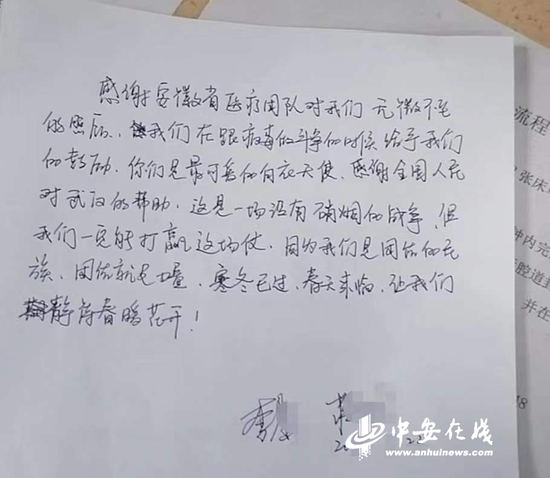 感谢安徽省医疗团队对我们无微不至
的照顾、我们在跟病毒的斗争的时候给予我们
的鼓励,你们是最可爱的白衣天使、感谢全国人民
对武汉的帮助,这是一场没有硝烟的战争,但
我们一定能打赢这场仗,因为我们是团结的民
族,团结就是力量,寒冬已过,春天来临,让我们
静待春暖花开!
流程
张床
钟内完
腔道
并在
中安在线
www.anhuinews.com